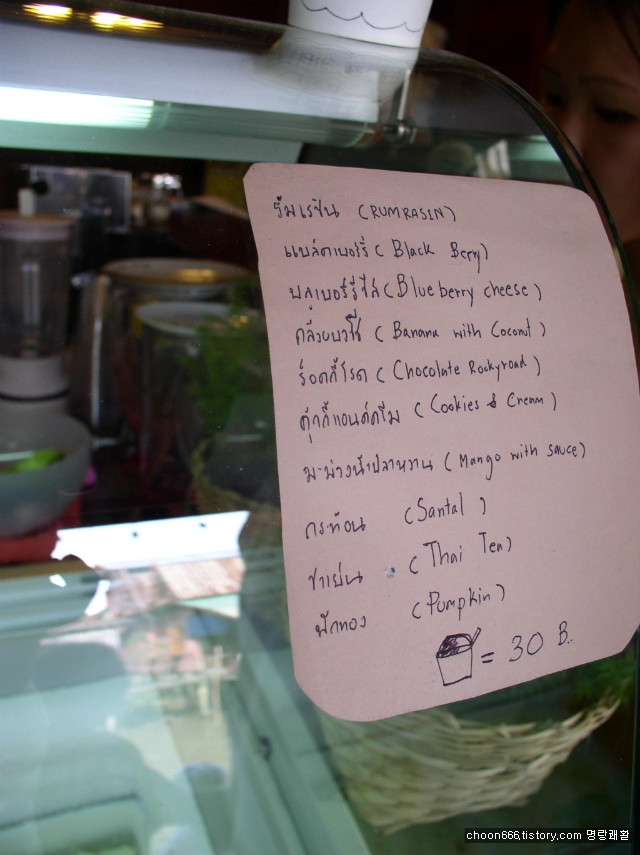 รัมเรซิน (RUMRASIN)
แบล็คเบอร์รี่ (Black Berry)
บลูเบอร์รี่ชีส (Blueberry cheese)
กล้วยบวชชี (Banana with Coconut)
ร็อคกี้โรด (Chocolate Rockyroad)
คุ้กกี้แอนด์ครีม (Cookies & Cream)
มะม่วงน้ำปลาหวาน (Mango with sauce)
กระท้อน (Santal)
ชาเย็น (Thai Tea)
ฟักทอง (Pumpkin)
= 30 B.
choon666.tistory.com 명랑쾌활